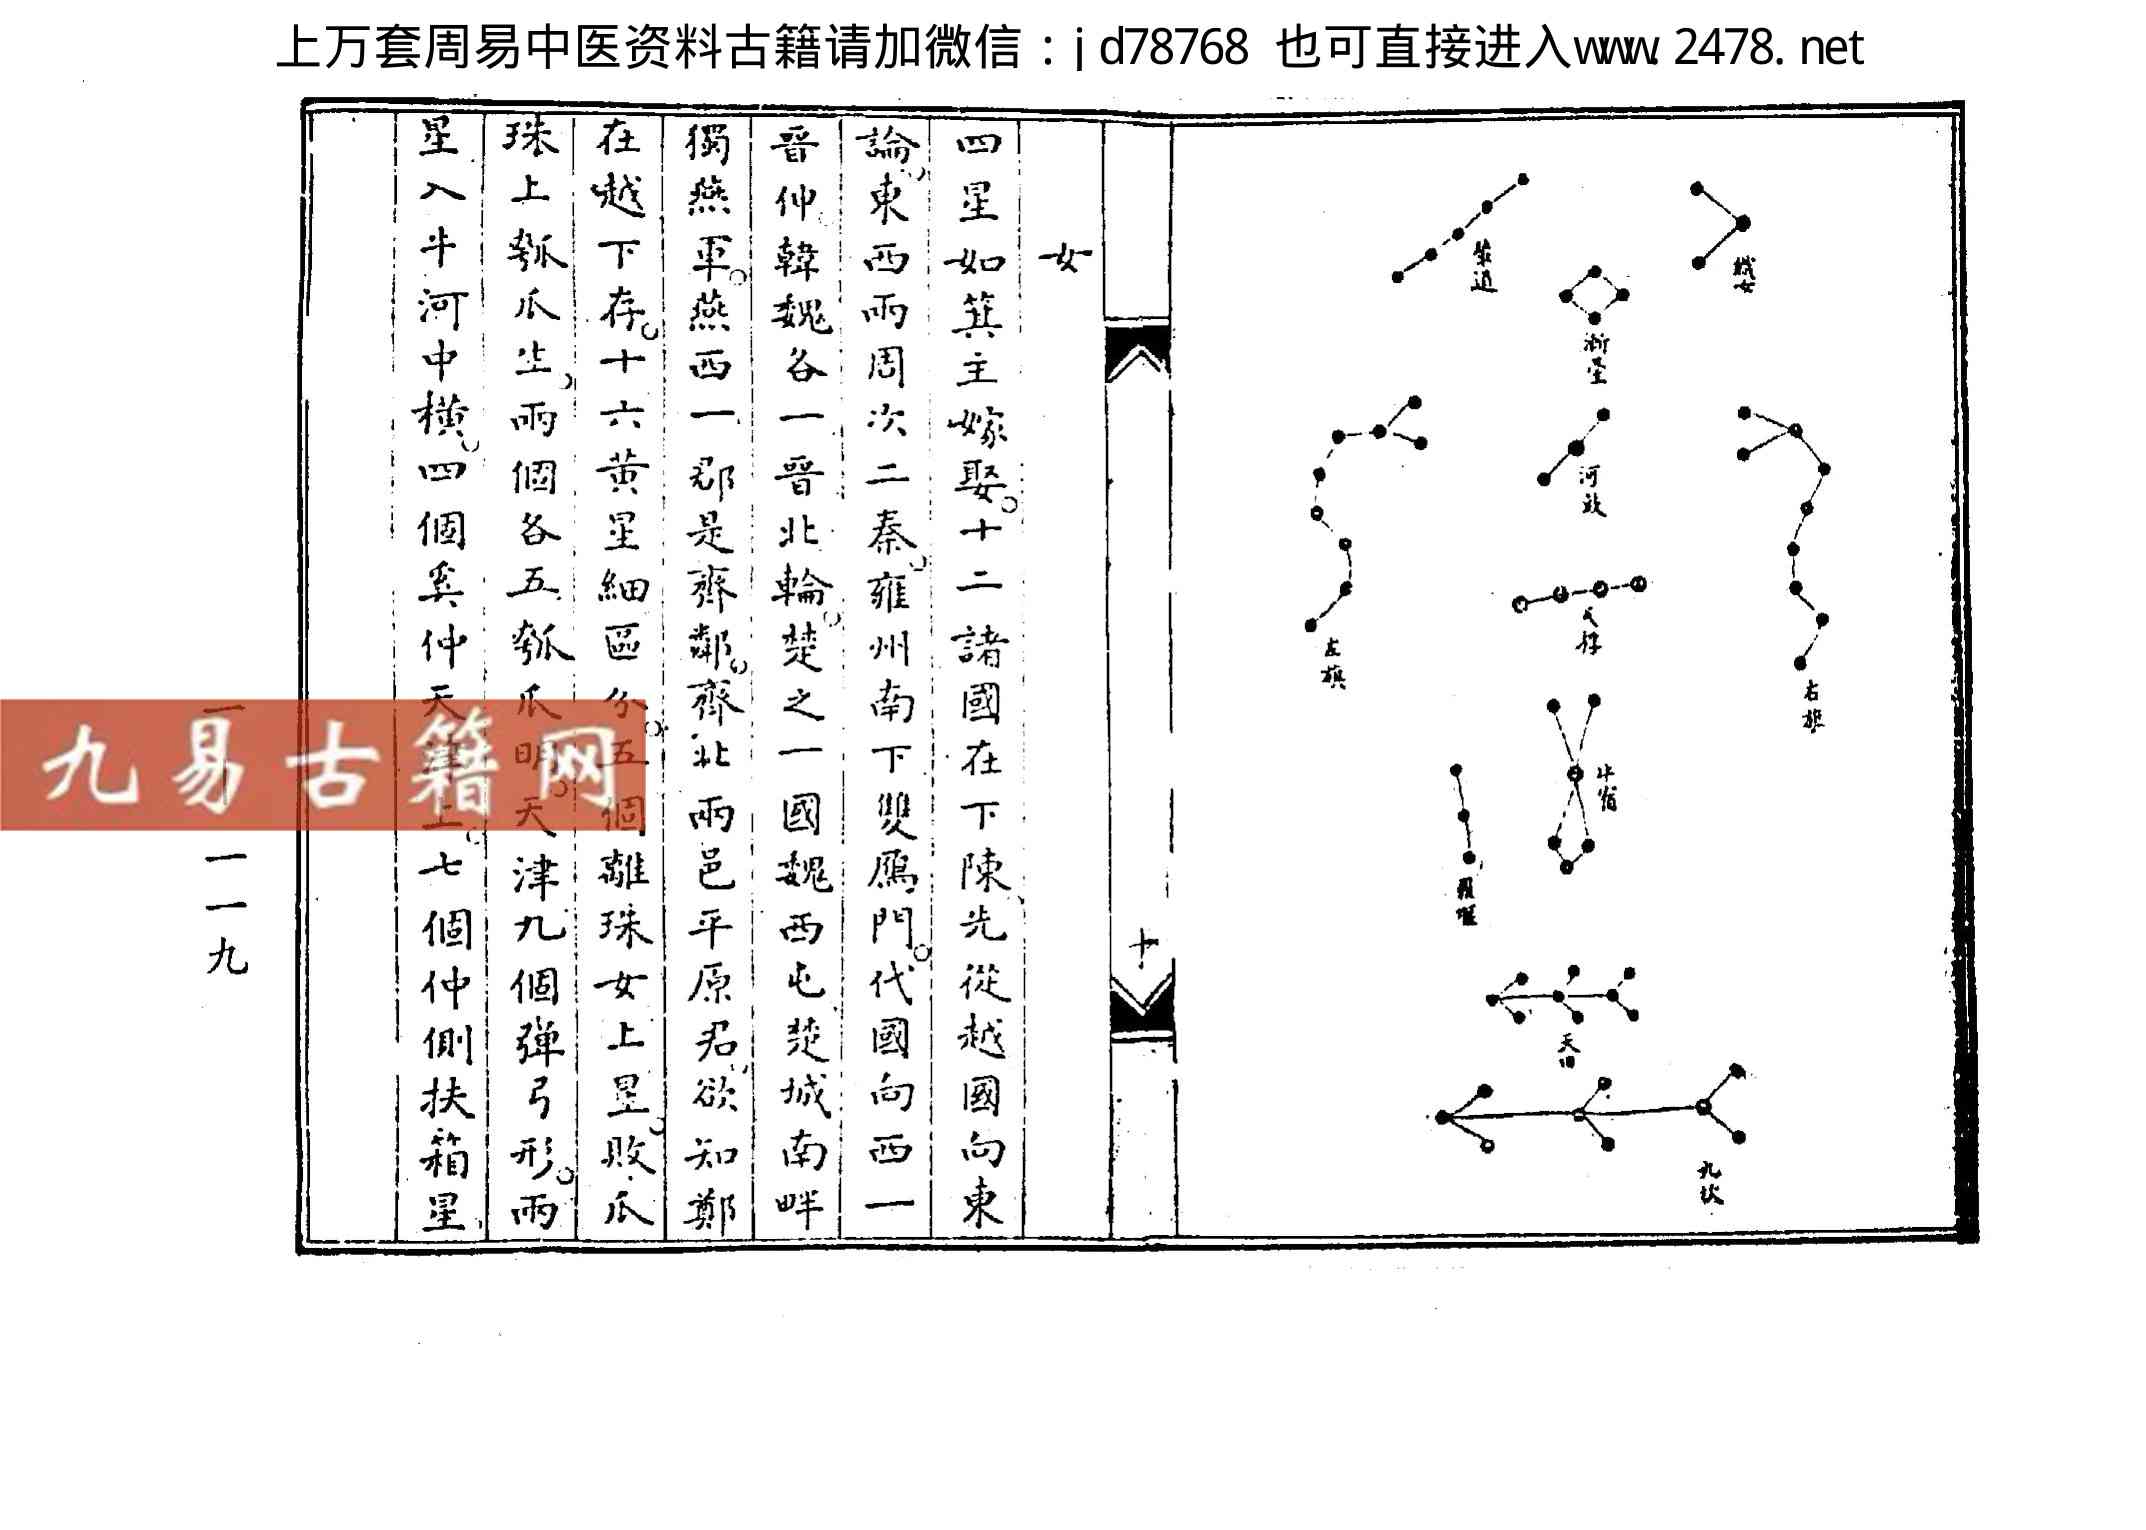 上万套周易中医资料古籍请加微信:jd78768 也可直接进入www.2478.net
織女
輦道
漸臺
河鼓
右旗
左旗
牛宿
羅堰
天田
九坎
十
女
四星如箕主嫁娶十二諸國在下陳先從越國向東
論東西兩周次二秦雍州南下雙鴈門代國向西一
晉伸韓魏各一晉北輪楚之一國魏西屯楚城南畔
獨燕軍燕西一郡是齊鄰齊北兩邑平原君欲知鄭
在越下存十六黄星細區分五個離珠女上星敗瓜
珠上瓠瓜生兩個各五瓠瓜明天津九個彈弓形兩
星入牛河中橫四個奚仲天津上七個仲側扶箱星
一一九
九易古籍网